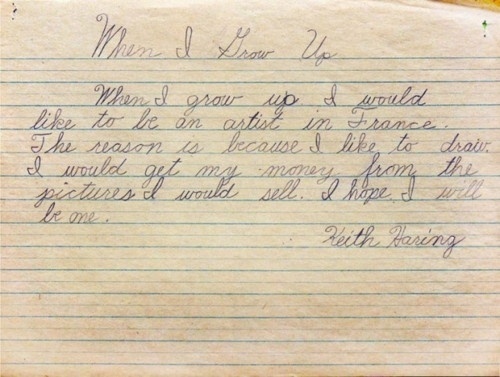 When I Grow Up
When I grow up I would
like to be an artist in France.
The reason is because I like to draw.
I would get my money from the
pictures I would sell. I hope I will
be one.
Keith Haring